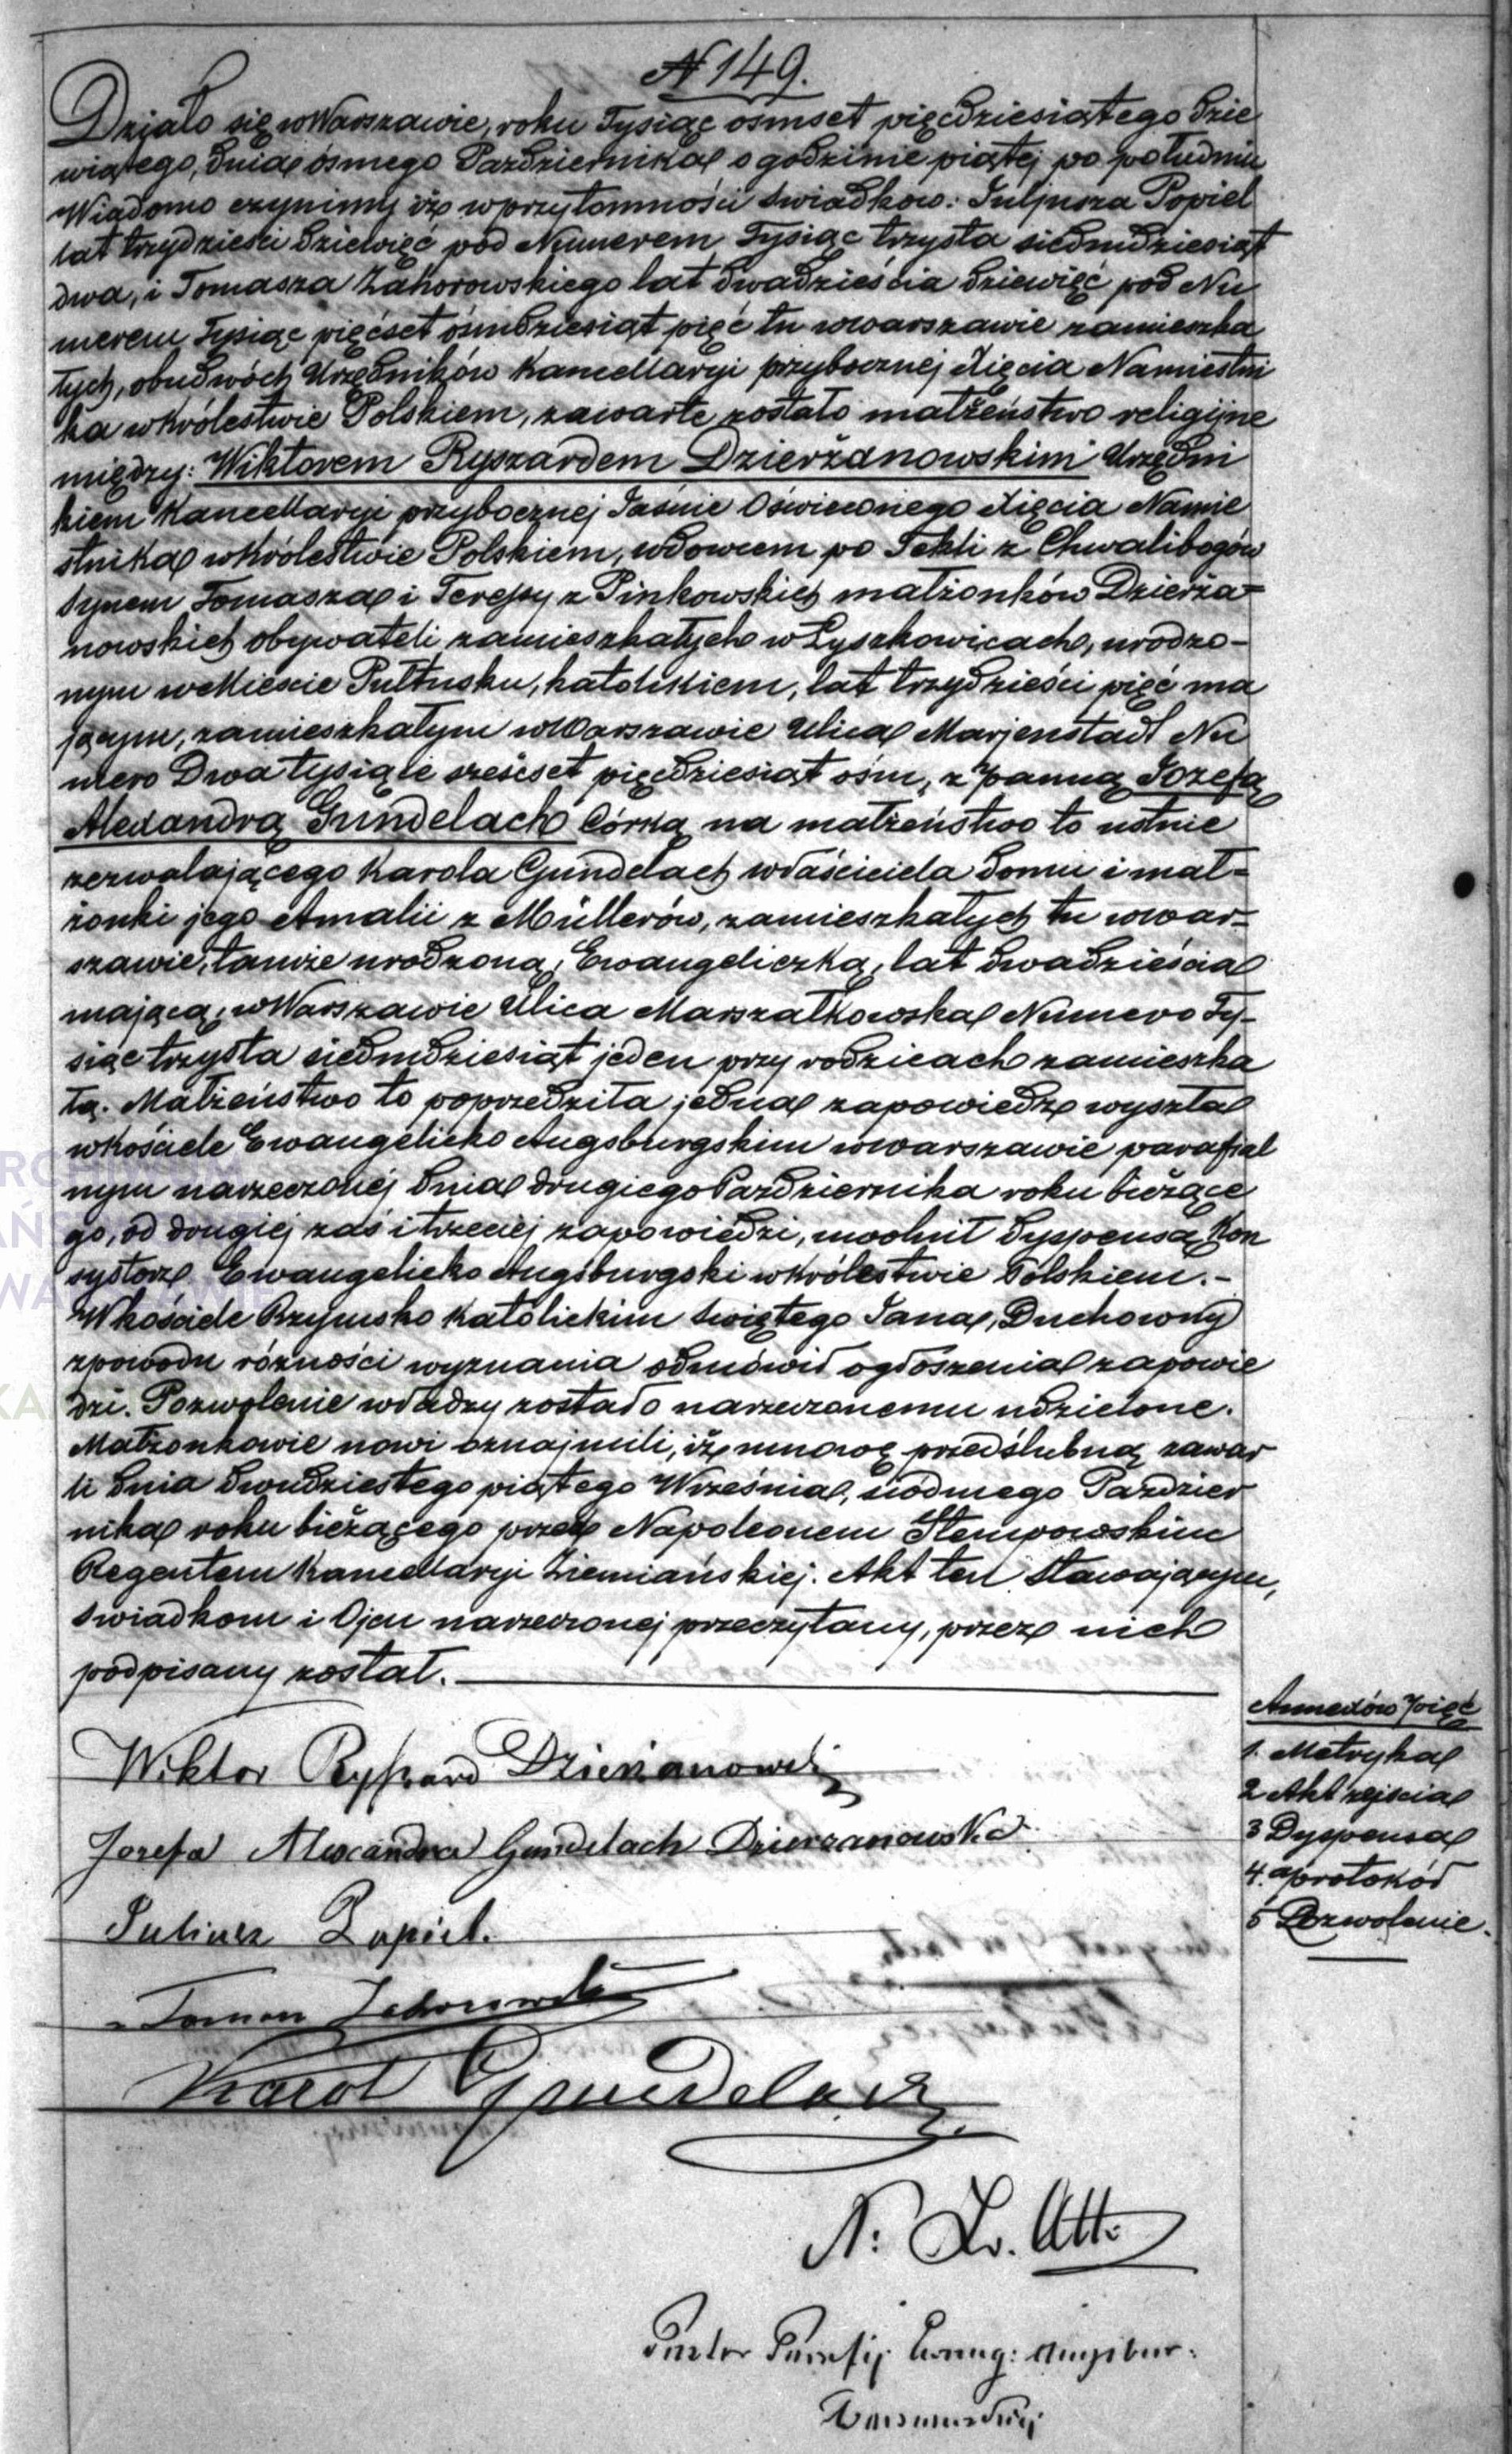 N 149.
Działo się w Warszawie, roku Tysiąc ośmset pięćdziesiątego dzie
wiątego, dnia ósmego Października o godzinie piątej po południu
Wiadomo czynimy iż w przytomności świadków: Juljusza Popiel
lat trzydzieści dziewięć pod Numerem Tysiąc trzysta siedmdziesiąt
dwa, i Tomasza Zahorowskiego lat dwadzieścia dziewięć pod Nu
merem Tysiąc pięćset ośmdziesiąt pięć tu w warszawie zamieszka
łych, obudwóch Urzędników Kancellaryi przybocznej Xięcia Namiestni
ka w Królestwie Polskiem, zawarte zostało małżeństwo religijne
między: Wiktorem Ryszardem Dzierżanowskim Urzędni
kiem Kancellaryi przybocznej Jaśnie Oświeconego Xięcia Namie
stnika w Królestwie Polskiem, wdowcem po Tekli z Chwalibogów
synem Tomasza i Teressy z Pinkowskich małżonków Dzierża=
nowskich obywateli zamieszkałych w Łyszkowicach, urodzo-
nym w Mieście Pułtusku, katolikiem, lat trzydzieści pięć ma
jącym, zamieszkałym w Warszawie Ulica Marjenstadt Nu
mero Dwa tysiące sześćset pięćdziesiąt ośm, z panną Józefą
Alexandrą Gundelach Córką na małżeństwo to ustnie
zezwalającego Karola Gundelach właściciela domu i mał=
żonki jego Amalii z Müllerów, zamieszkałych tu w war=
szawie, tamże urodzoną, Ewangeliczką, lat dwadzieścia
mającą, w Warszawie Ulica Marszałkowska Numero Ty-
siąc trzysta siedmdziesiąt jeden przy rodzicach zamieszka
łą. Małżeństwo to poprzedziła jedna zapowiedź wyszła
w kościele Ewangelicko Augsburgskim w warszawie parafial
nym narzeczonéj dnia drugiego Października roku bieżące
go, od drugiej zaś i trzeciej zapowiedzi, uwolnił dyspensą Kon
systorz Ewangelicko Augsburgski w Królestwie Polskiem.-
W kościele Rzymsko Katolickim Świętego Jana, Duchowny
z powodu różności wyznania odmówił ogłoszenia zapowie
dzi. Pozwolenie władzy zostało narzeczonemu udzielone.
Małżonkowie nowi oznajmili, iż umowę przedślubną zawar
li dnia dwudziestego piątego Września, siódmego Paździer
nika roku bieżącego przed Napoleonem Stempowskim
Regentem Kancellaryi Ziemiańskiej. Akt ten Stawającym,
Świadkom i Ojcu narzeczonej przeczytany, przez nich
podpisany został.
Annexów pięć
1. Metryka
2 Akt zejścia
3 Dyspensa
4. protokół
5 Pozwolenie.
Wiktor Ryszard Dzierżanowski
Jozefa Alexandra Gundelach Dzierzanowska
Juliusz Popiel.
Tomasz Zahorowski
Karol Gundelach
Pastor Parafij Ewang: Augsbur:
Warszawskiej